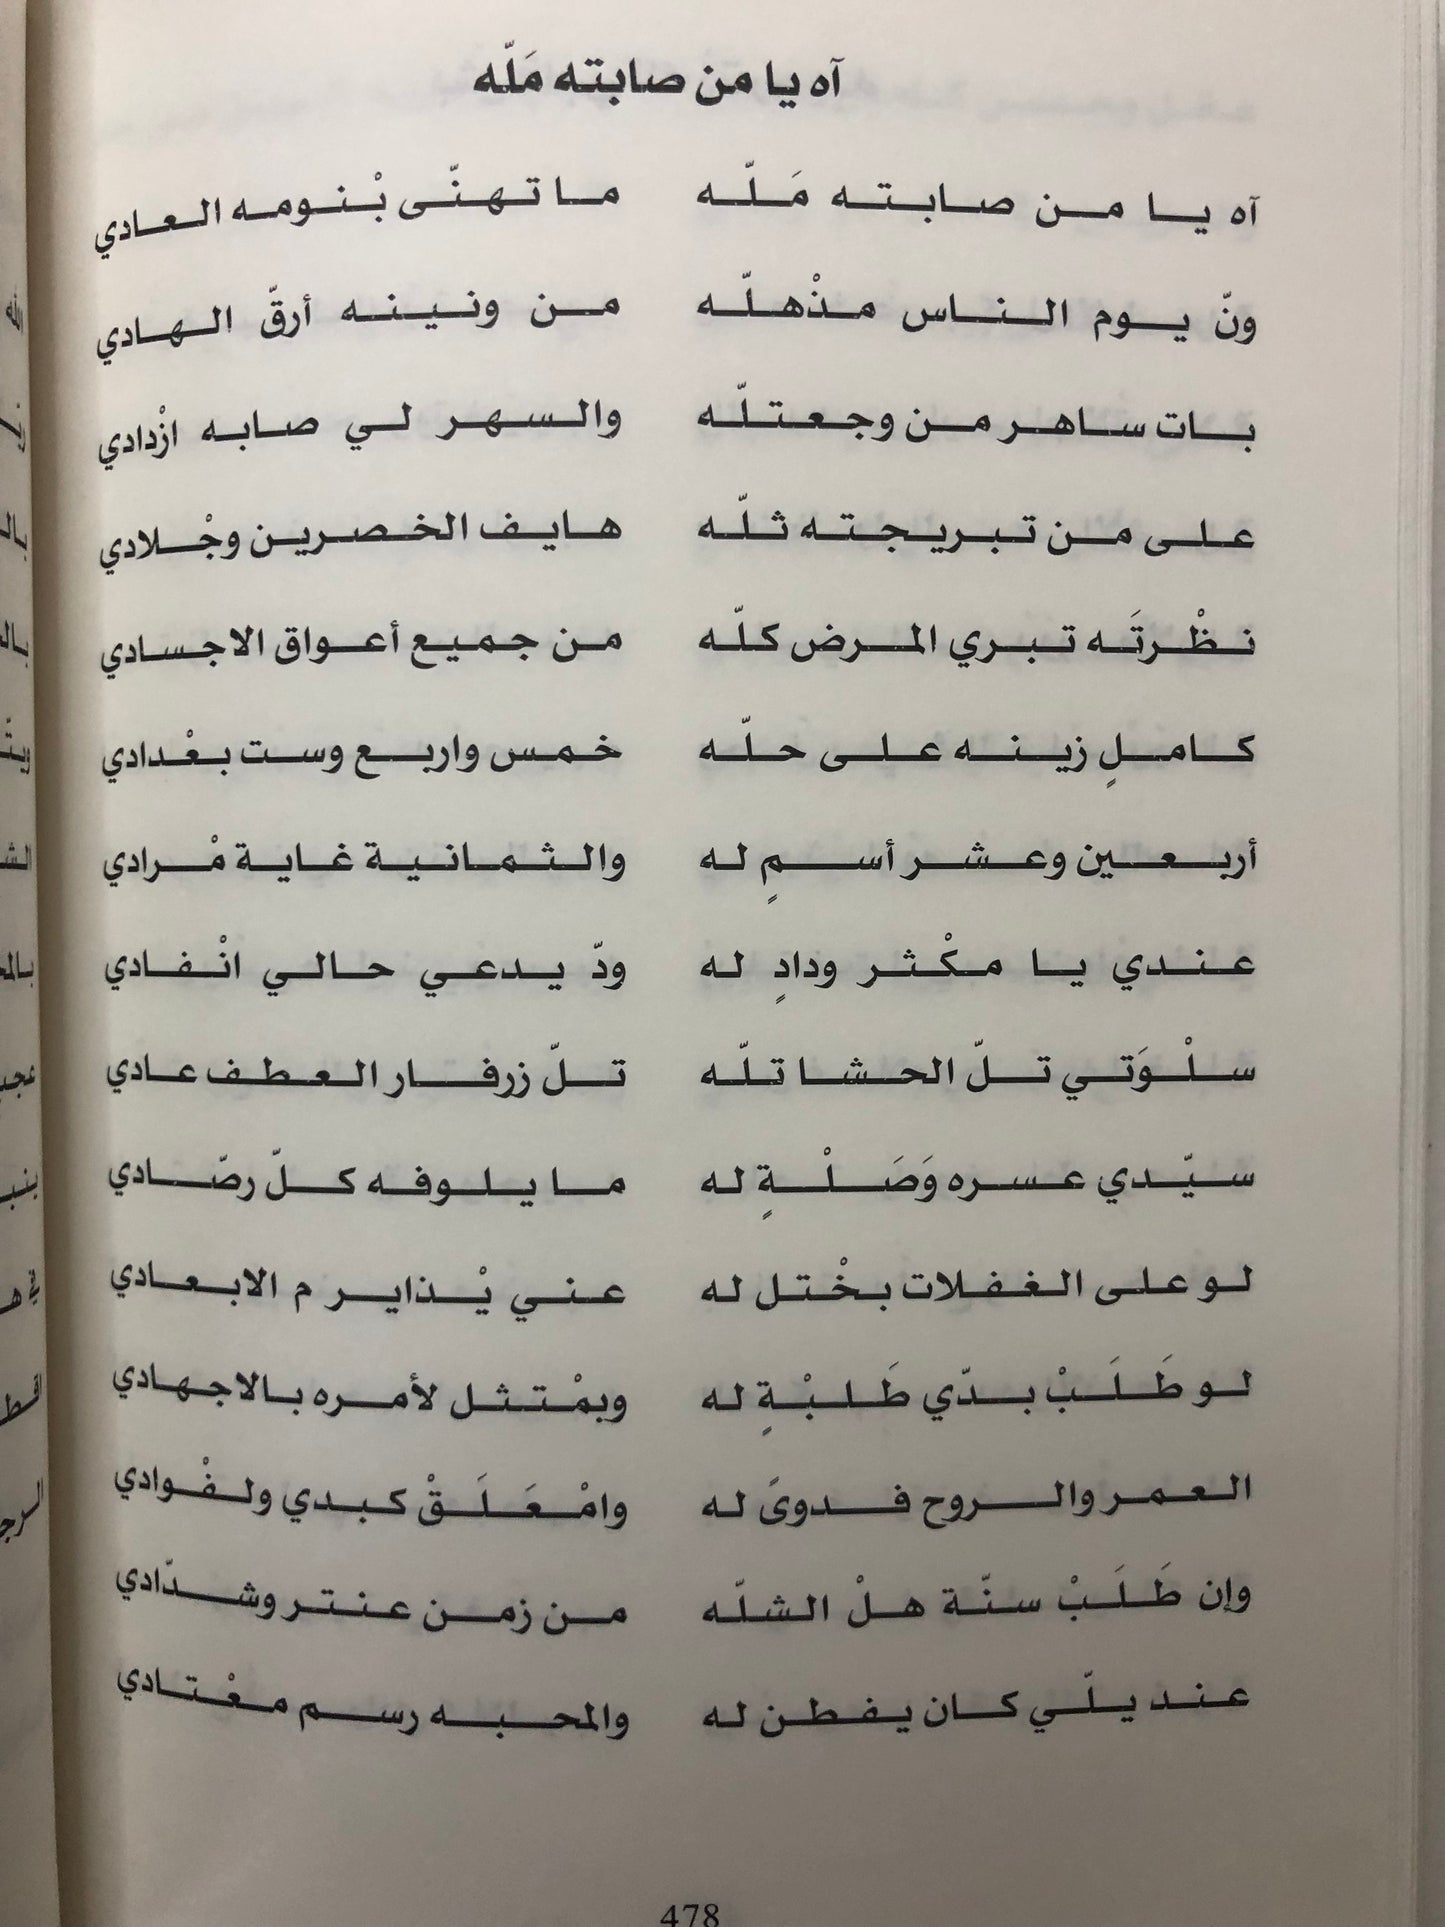 آه يا من صابته مَلّه
آه يا من صابته مَلّه ما تهنّى بْنومه العادي
ونّ يوم الناس مذْهلّه من ونينه أرقّ الهادي
بات ساهر من وجعتلّه والسهر لي صابه ازْدادي
على من تبريجته ثلّه هايف الخصرين وجْلادي
نظْرتَه تبري المرض كلّه من جميع أعواق الاجسادي
كاملٍ زينه على حلّه خمس واربع وست بغْدادي
أربعين وعشر أسمٍ له والثمانية غاية مْرادي
عندي يا مكْثر ودادٍ له ودّ يدعي حالي انْفادي
سلْوَتي تلّ الحشا تلّه تلّ زرفار العطف عادي
سيّدي عسره وَصَلْةٍ له ما يلوفه كلّ رصّادي
لو على الغفلات بخْتل له عني يْذاير م الابعادي
لو طَلَبْ بدّي طَلبْةٍ له وبمْتثل لأمره بالاجهادي
العمر والروح فدوىً له وامْعَلَقْ كبدي ولفْوادي
وإن طَلَبْ سنّة هلْ الشلّه من زمن عنتر وشدّادي
عند يلّي كان يفطن له والمحبه رسم معْتادي
478